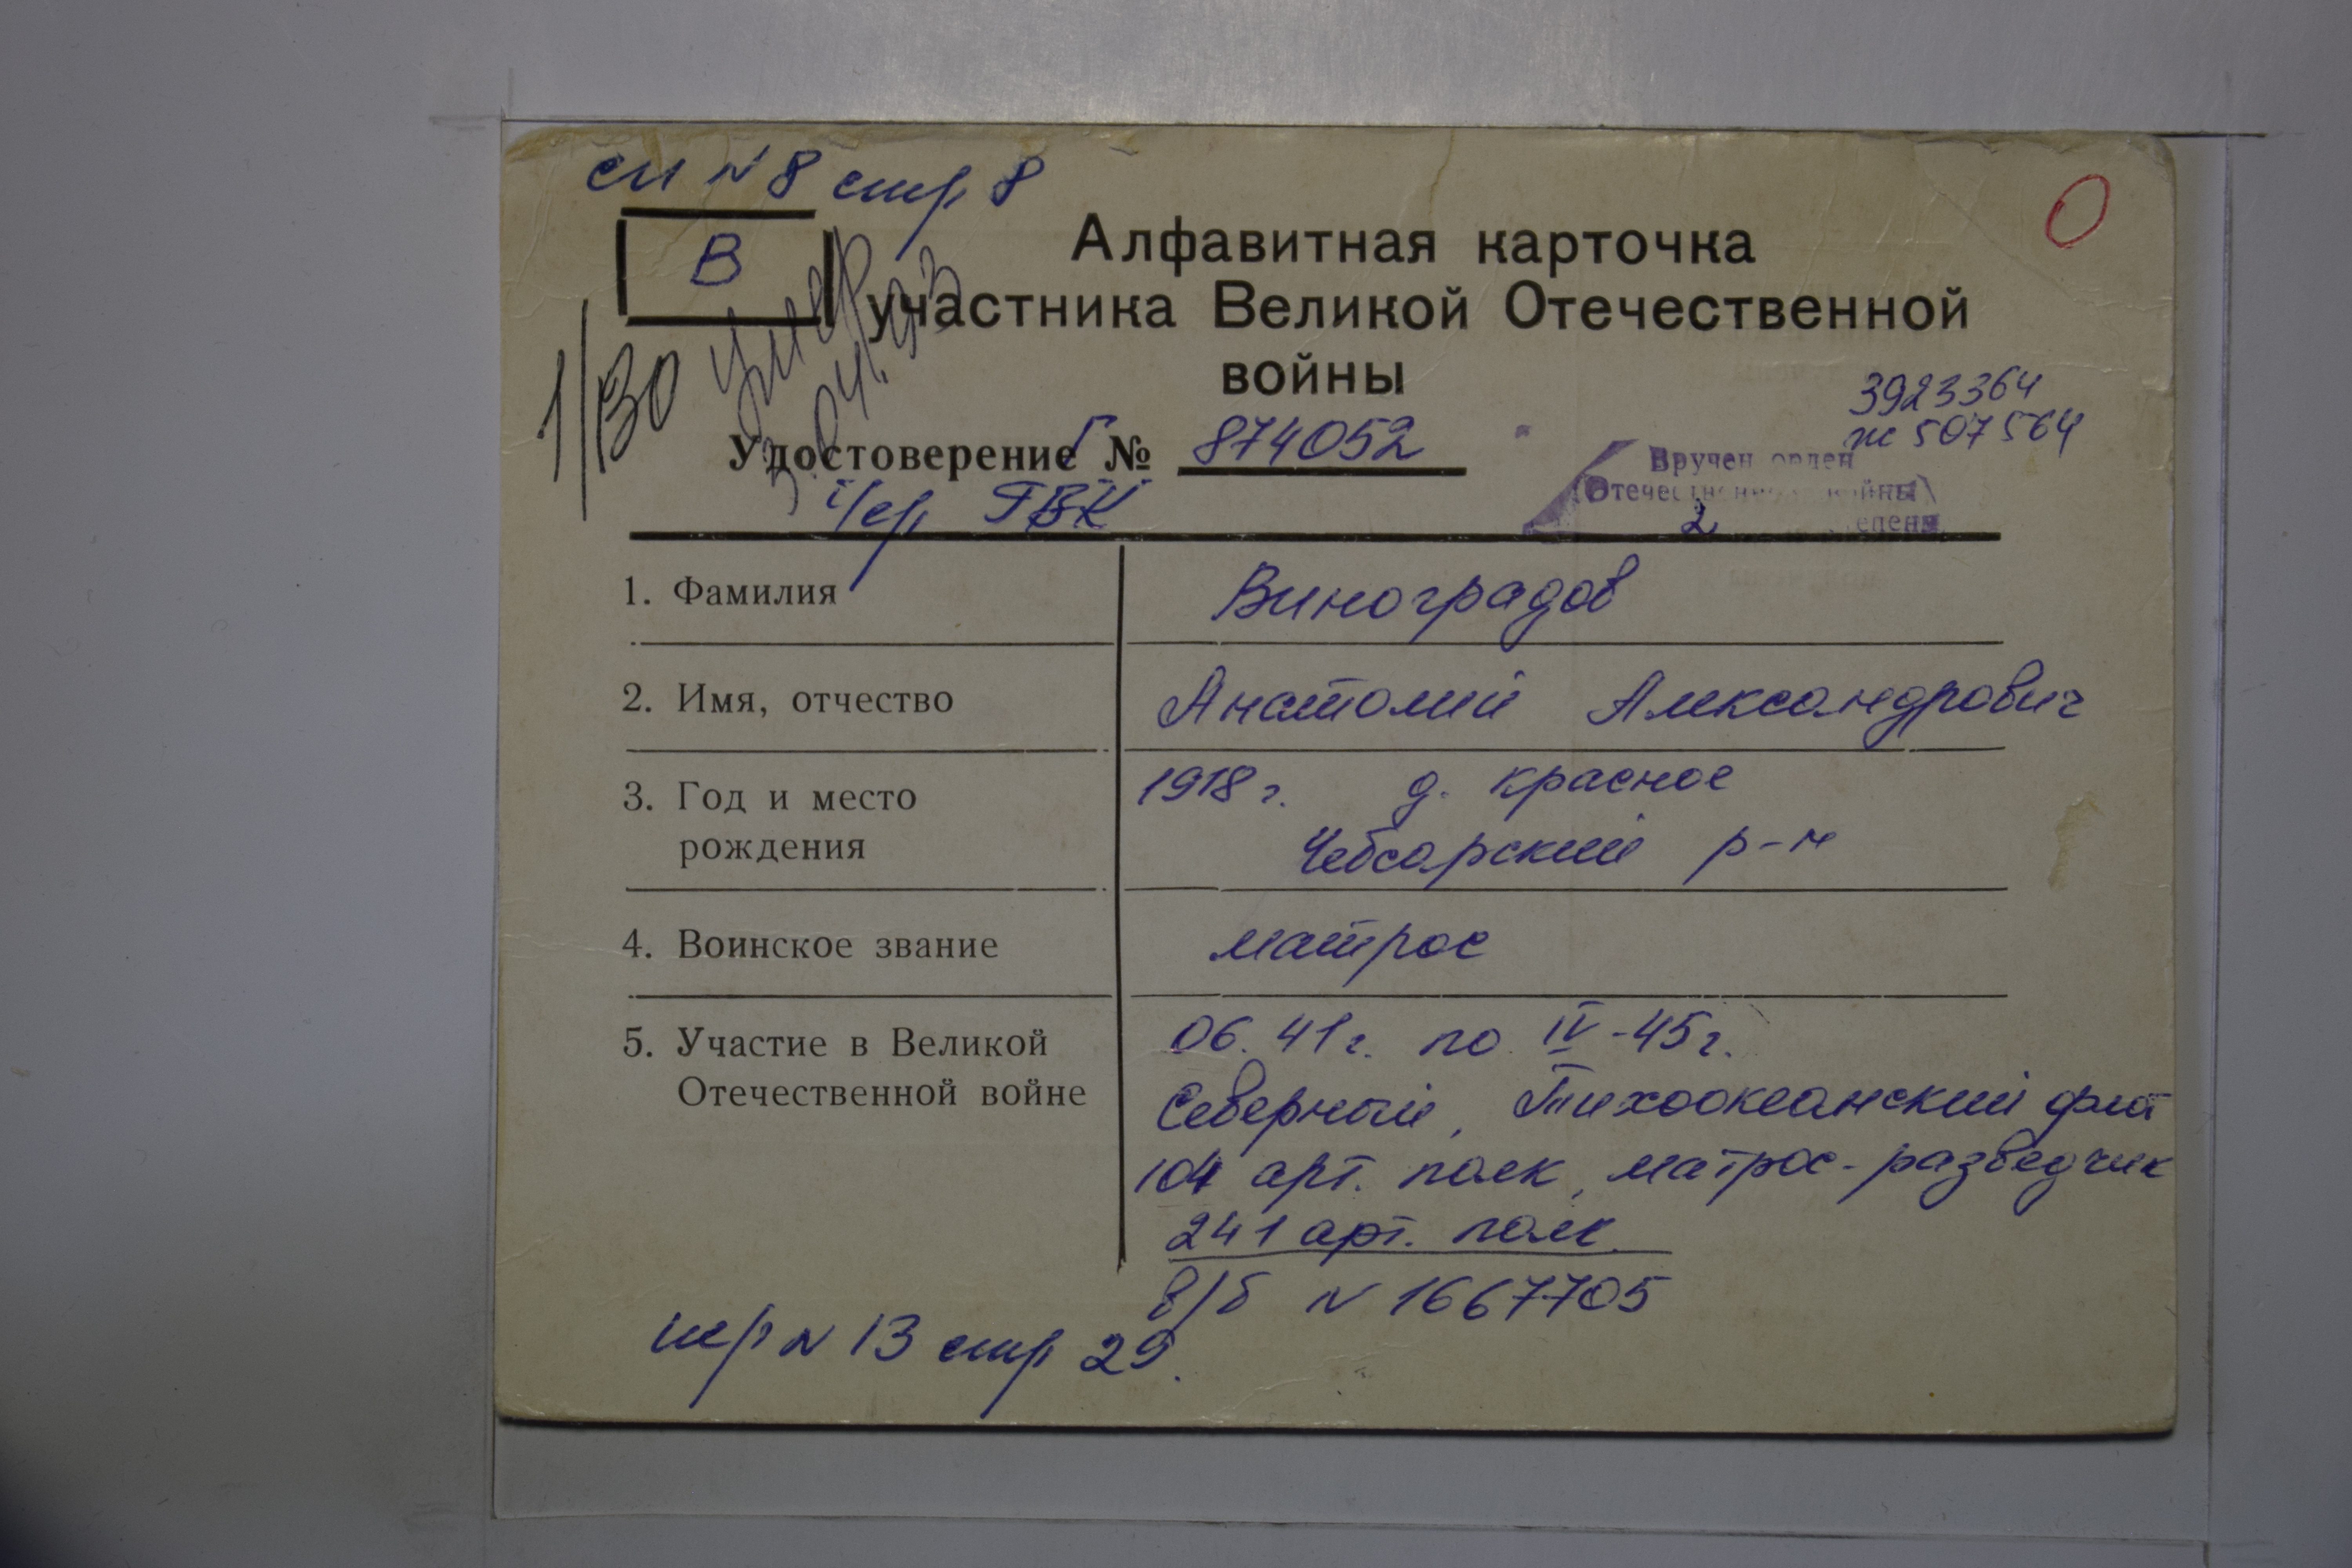 сп №8 стр 8
В
Алфавитная карточка
участника Великой Отечественной
войны
1/ВО
умер
3.04.93
3923364
ж 507564
Удостоверение Г № 874052
Вручен орден
Отечественной войны
2 степени
ГВК
1. Фамилия Виноградов
2. Имя, отчество Анатолий Александрович
3. Год и место 1918 г. д. Красное
рождения Чебсарский р-н
4. Воинское звание матрос
5. Участие в Великой 06. 41 г. по IV-45 г.
Отечественной войне Северный, Тихоокеанский флот
104 арт. полк, матрос-разведчик
241 арт. полк
в/б № 1667705
№ 13 стр 29.